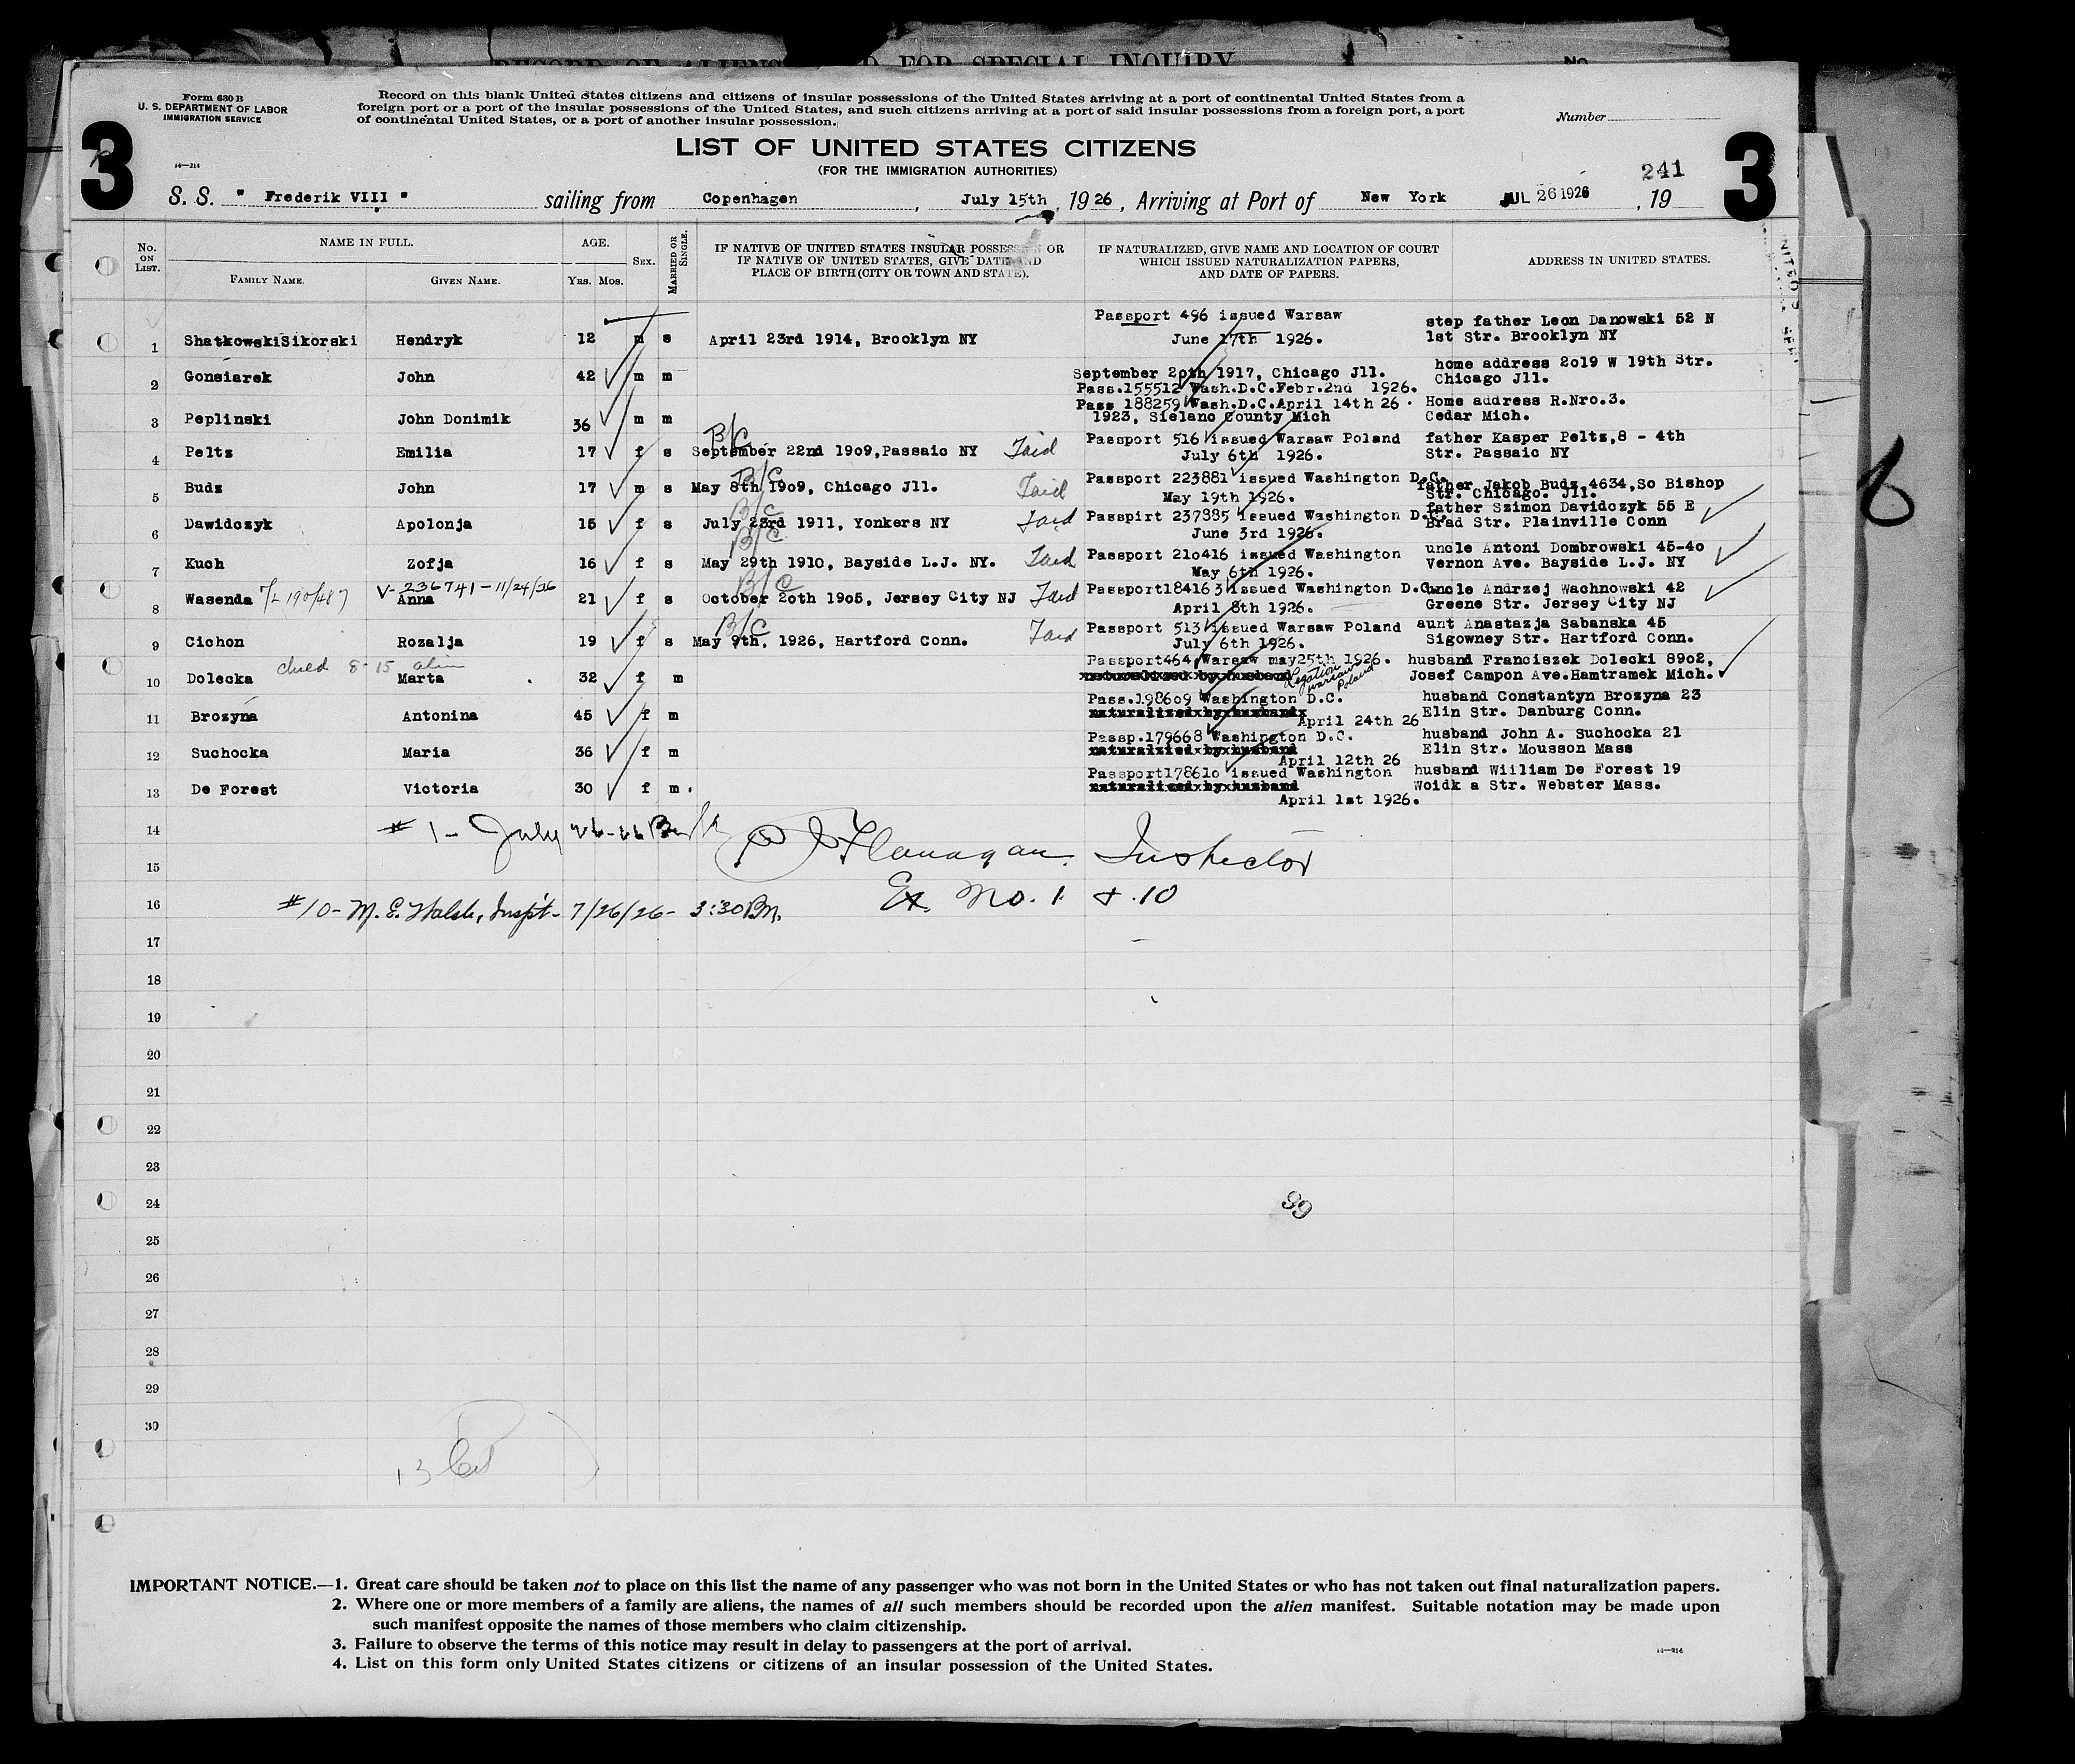 RECORD OF ALIENS D FOR SPECIAL INQUIRY
No.
Form 630 B
U. S. DEPARTMENT OF LABOR
IMMIGRATION SERVICE
14—214
3
Record on this blank United States citizens and citizens of insular possessions of the United States arriving at a port of continental United States from a
foreign port or a port of the insular possessions of the United States, and such citizens arriving at a port of said insular possessions from a foreign port, a port
of continental United States, or a port of another insular possession.
Number
LIST OF UNITED STATES CITIZENS
(FOR THE IMMIGRATION AUTHORITIES)
241
3
S. S. " Frederik VIII " sailing from Copenhagen , July 15th , 1926 , Arriving at Port of New York JUL 26 1926 , 19
No. ON LIST.
NAME IN FULL.
FAMILY NAME. GIVEN NAME.
AGE.
YRS. MOS.
SEX.
MARRIED OR SINGLE.
IF NATIVE OF UNITED STATES INSULAR POSSESSION OR
IF NATIVE OF UNITED STATES, GIVE DATE AND
PLACE OF BIRTH (CITY OR TOWN AND STATE).
IF NATURALIZED, GIVE NAME AND LOCATION OF COURT
WHICH ISSUED NATURALIZATION PAPERS,
AND DATE OF PAPERS.
ADDRESS IN UNITED STATES.
1 ShatkowskiSikorski Hendryk 12 m s April 23rd 1914, Brooklyn NY
Passport 496 issued Warsaw
June 17th 1926.
step father Leon Danowski 52 N
1st Str. Brooklyn NY
2 Gonsiarek John 42 m m
September 20th 1917, Chicago Jll.
Pass.155512 Wash.D.C.Febr.2nd 1926.
home address 2o19 W 19th Str.
Chicago Jll.
3 Peplinski John Donimik 36 m m
Pass 188259 Wash.D.C.April 14th 26.
1923, Sielano County Mich
Home address R.Nro.3.
Cedar Mich.
4 Peltz Emilia 17 f s September 22nd 19o9,Passaic NY
B/C
Passport 516 issued Warsaw Poland
July 6th 1926.
father Kasper Peltz,8 - 4th
Str. Passaic NY
5 Budz John 17 m s May 8th 19o9, Chicago Jll.
B/C
Passport 223881 issued Washington D.C.
May 19th 1926.
father Jakob Budz 4634,So Bishop
Str. Chicago. Jll.
6 Dawidczyk Apolonja 15 f s July 23rd 1911, Yonkers NY
B/C
Passpirt 237335 issued Washington D.C.
June 3rd 1926.
father Szimon Davidczyk 55 E
Brad Str. Plainville Conn
7 Kuch Zofja 16 f s May 29th 1910, Bayside L.J. NY.
B/C
Passport 21o416 issued Washington
May 6th 1926.
uncle Antoni Dombrowski 45-4o
Vernon Ave. Bayside L.J. NY
V-236741-11/24/36
8 Wasenda Anna 21 f s October 2oth 19o5, Jersey City NJ
B/C
Passport184163 issued Washington D.C.
April 8th 1926.
uncle Andrzej Wachnowski 42
Greene Str. Jersey City NJ
9 Cichon Rozalja 19 f s May 9th, 1926, Hartford Conn.
B/C
Passport 513 issued Warsaw Poland
July 6th 1926.
aunt Anastazja Sabanska 45
Sigowney Str. Hartford Conn.
8-15
10 Dolecka Marta 32 f m
Passport464,Warsaw may25th 1926.
naturalized by husband
Legation Warsaw Poland
husband Franciszek Dolecki 89o2,
Josef Campon Ave.Hamtramek Mich.
11 Brozyna Antonina 45 f m
Pass.1986o9 Washington D.C.
naturalized by husband
April 24th 26
husband Constantyn Brozyna 23
Elin Str. Danburg Conn.
12 Suchocka Maria 36 f m
Passp.179668 Washington D.C.
naturalzied by husband
April 12th 26
husband John A. Suchocka 21
Elin Str. Mousson Mass
13 De Forest Victoria 30 f m.
Passport17861o issued Washington
naturalized by husband
April 1st 1926.
husband Wiiliam De Forest 19
Woidk a Str. Webster Mass.
14 # 1 - July 26-26
15 Flanagan. Inspector
16 #10- M. E. Walsh, Inspt- 7/26/26- 3:30 Pm. Ex. No. 1 & 10
17
18
19
20
21
22
23
24
99
25
26
27
28
29
30
13
IMPORTANT NOTICE.—1. Great care should be taken not to place on this list the name of any passenger who was not born in the United States or who has not taken out final naturalization papers.
2. Where one or more members of a family are aliens, the names of all such members should be recorded upon the alien manifest. Suitable notation may be made upon
such manifest opposite the names of those members who claim citizenship.
3. Failure to observe the terms of this notice may result in delay to passengers at the port of arrival.
4. List on this form only United States citizens or citizens of an insular possession of the United States.
14—214